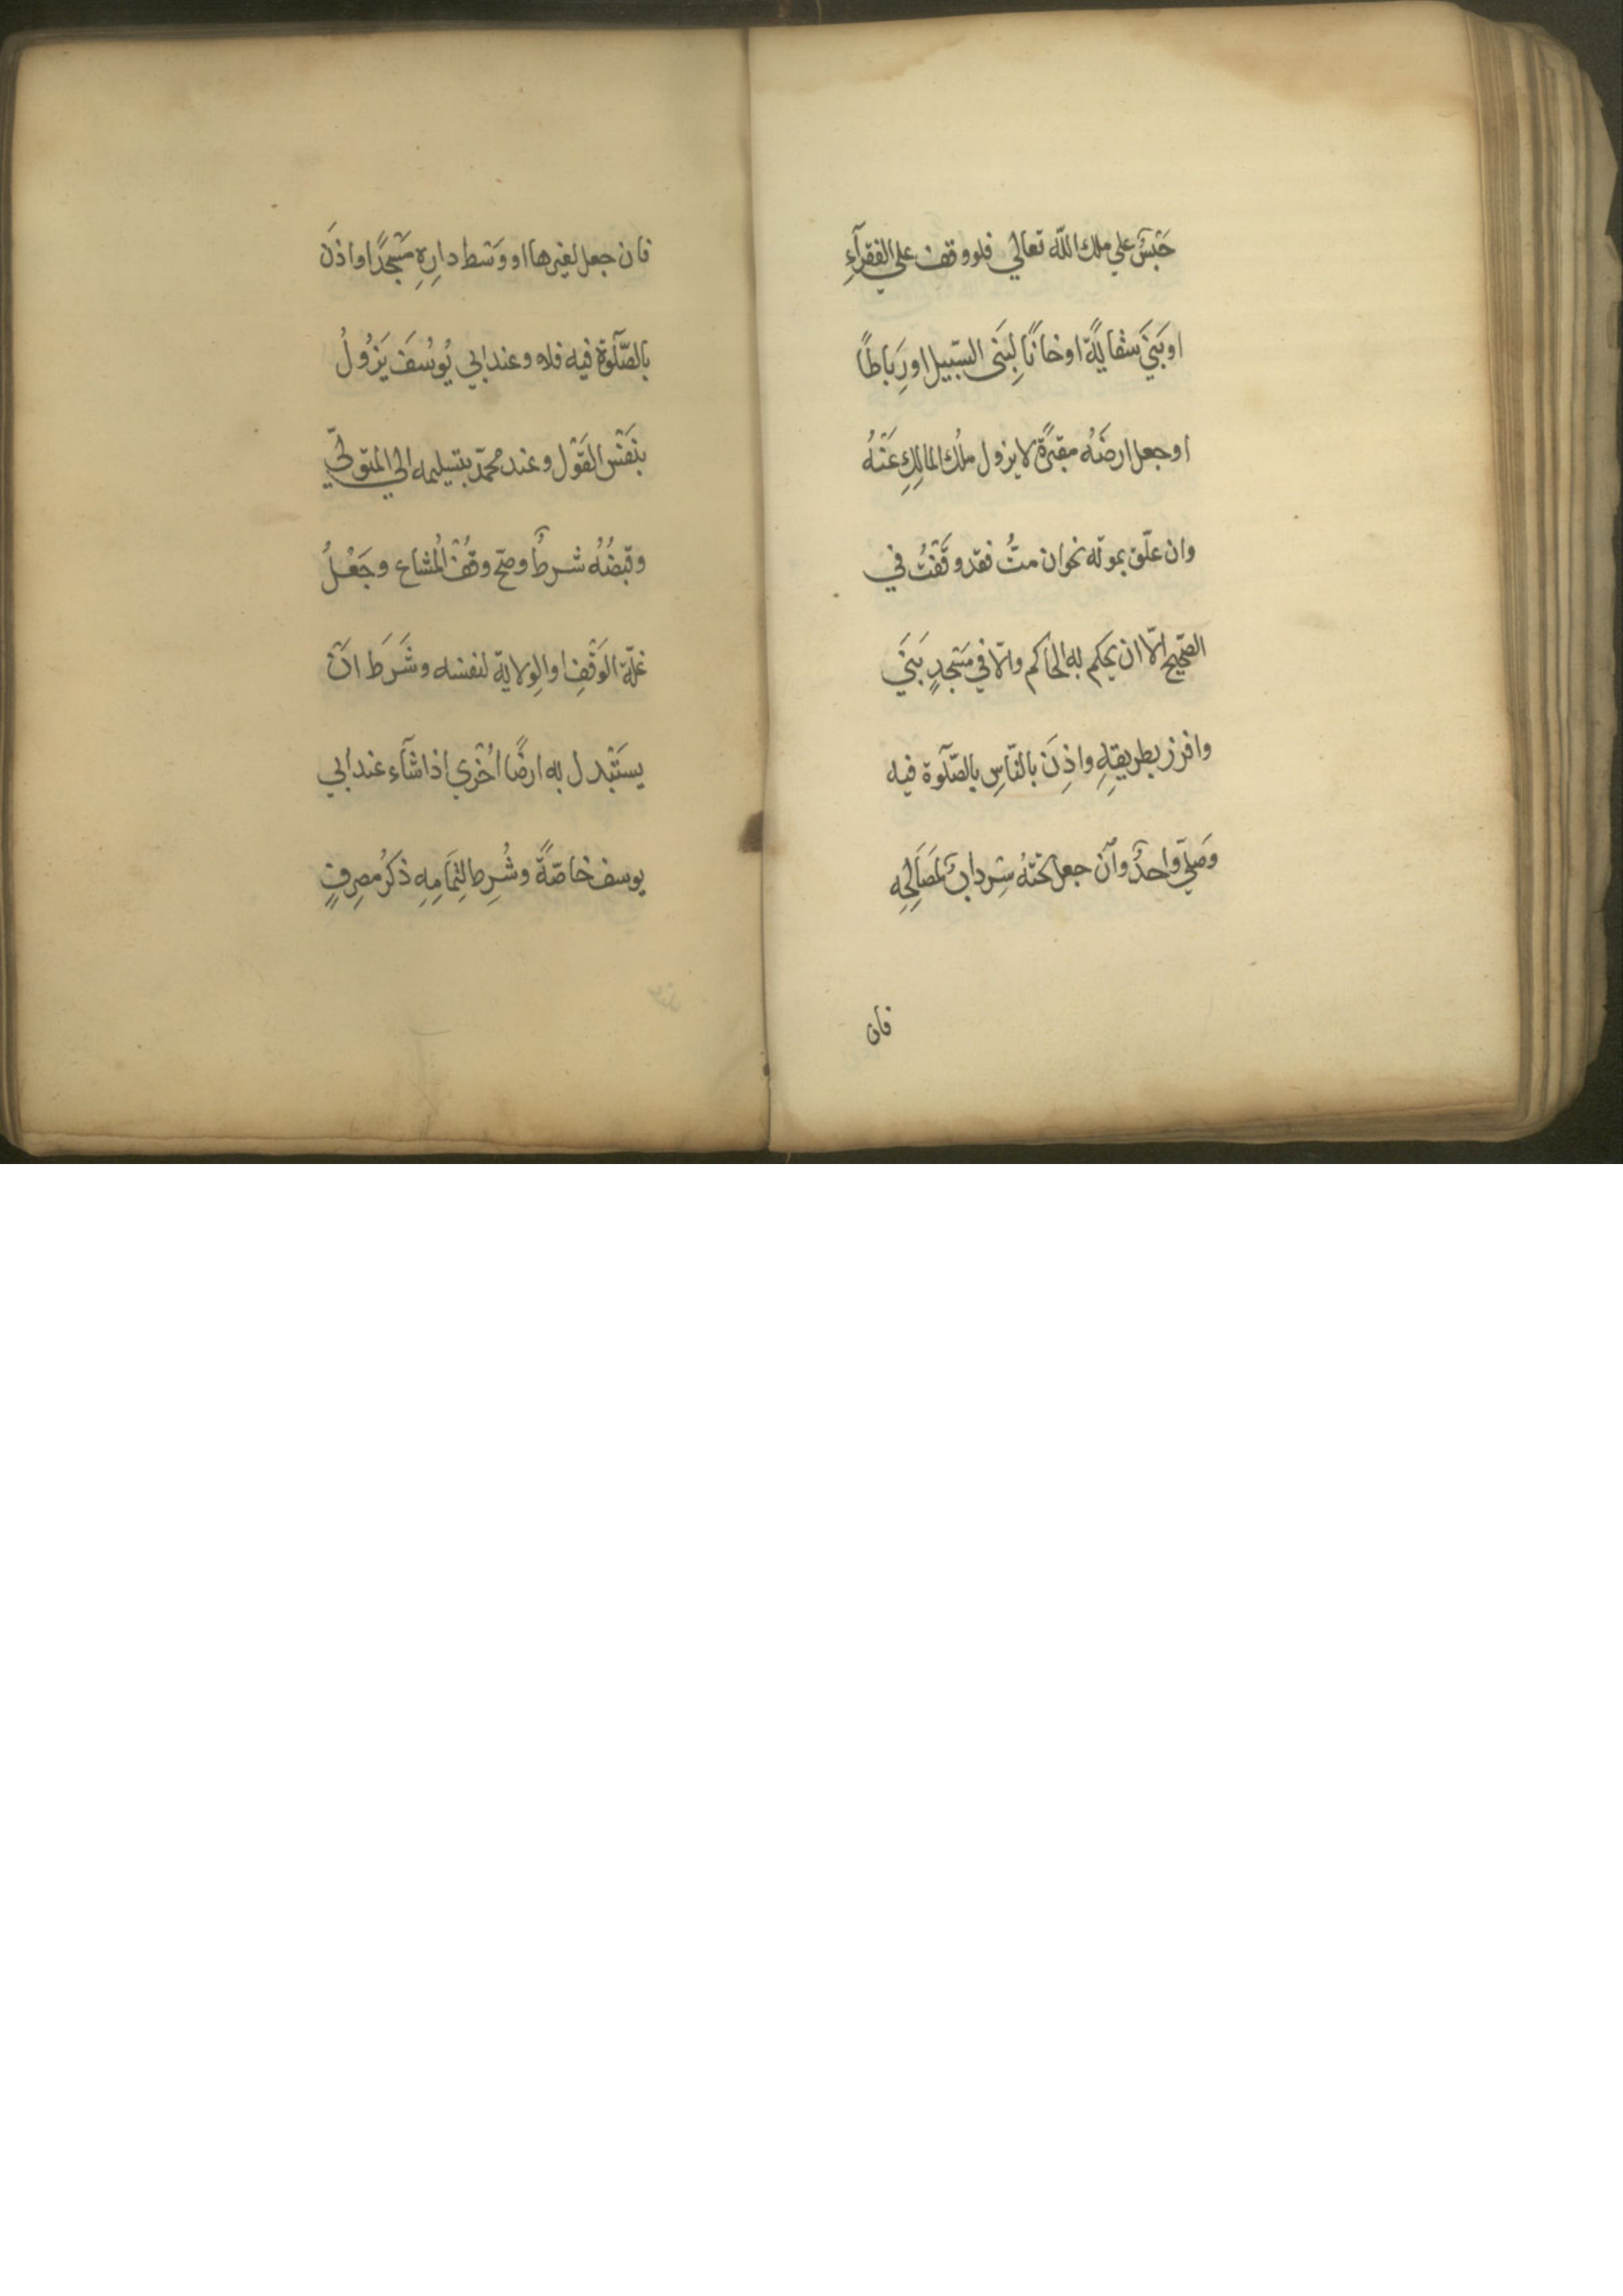 حَبْسٌ علي ملك اللّه تعالي فلو وقف علي الفقرآءِ
او بَنَي سقايةً او خانًا لِبَنى السّبيل او رِباطًا
او جعل ارضَهُ مقبَرةً لا يزول ملُك المالِكِ عَنْهُ
وان علّق بموته نحو ان متُّ فقد وقَفْتُ في
الصّحيح الّا ان يحكم به الحاكم والّا في مَسْجدٍ بَنَي
وافرز بطريقِهِ واذِنَ بالنّاسِ بالصّلوة فيه
وَصَلّي واحدٌ وان جعل تحتهُ سِردابٌ لمَصَالِحِه
فان
فان جعل لغيرها او وَسَط دارِهِ مَسْجدًا واذَن
بالصّلوة فيه فلا و عند ابي يُوسُفَ يَزُولُ
بنَفْس القَوْل و عند محمّد بتسليمه الي المتولّي
وقبضُهُ شرطٌ وصحّ وقْفُ المُشاع وجَعْلُ
غلّة الوَقْفِ او الوِلاية لنفسه وشَرَط انْ
يستَبْدل به ارضًا اُخْري اذا شآء عند ابي
يوسف خاصّةً وشُرِط لِتمَامِهِ ذكرُ مصرِفٍ